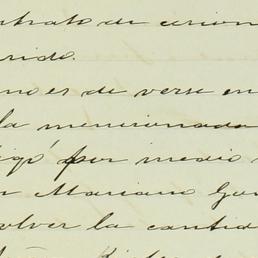 ntrato de cesion
rido.
no es de verse en
la mencionada
igó por medio
n Mariano Gon
olver la cantid